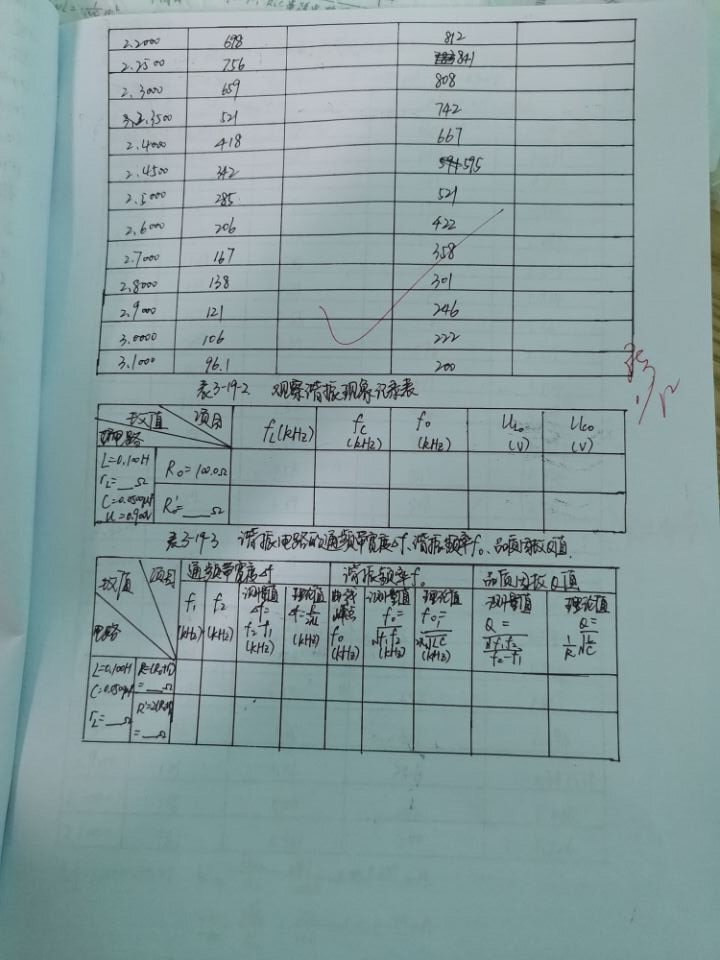 2.2000 698 812
2.2500 756 841
2.3000 659 808
2.3500 521 742
2.4000 418 667
2.4500 342 595
2.5000 285 521
2.6000 206 422
2.7000 167 358
2.8000 138 301
2.9000 121 246
3.0000 106 222
3.1000 96.1 200
表3-19-2 观察谐振现象记录表
数值 项目 fL(kHz) fC(kHz) f0(kHz) UL0(V) UC0(V)
电路
L=0.100H R0=100.0Ω
rL=__Ω
C=0.0500μF R0'=__Ω
U=0.900V
表3-19-3 谐振电路的通频带宽度Δf、谐振频率f0、品质因数Q值
数值 项目 通频带宽度Δf 谐振频率f0 品质因数Q值
电路 f1(kHz) f2(kHz) 测量值Δf=f2-f1(kHz) 理论值 (kHz) 曲线峰点f0(kHz) 测量值f0=√f1f2(kHz) 理论值f0=1/2π√LC(kHz) 测量值Q=√f1f2/f2-f1 理论值Q=1/R√L/C
L=0.100H
C=0.0500μF =__Ω
rL=__Ω
=__Ω